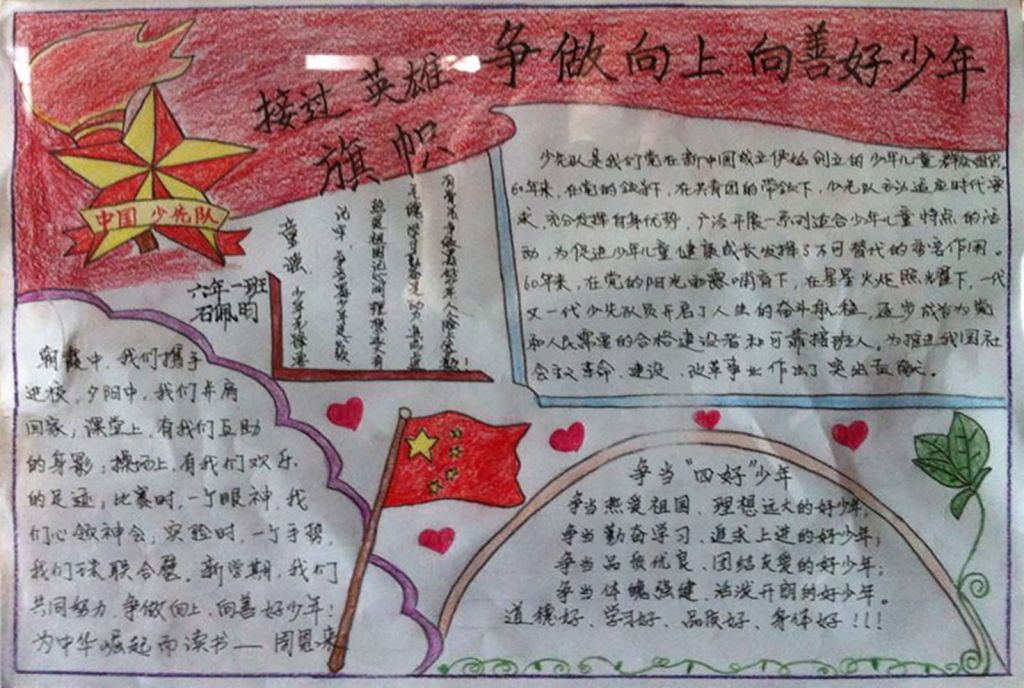 争做向上向善好少年
接过英雄
旗帜
中国少先队
六年一班
石佩明
童谣
少先队是我们党在新中国成立伊始创立的少年儿童群众组织。
60年来，在党的领导下，在共青团的带领下，少先队主动适应时代要
求，充分发挥自身优势，广泛开展一系列适合少年儿童特点的活
动，为促进少年儿童健康成长发挥了不可替代的重要作用。
60年来，在党的阳光雨露哺育下，在星星火炬照耀下，一代
又一代少先队员开启了人生的奋斗航程，逐步成长为党
和人民需要的合格建设者和可靠接班人，为推进我国社
会主义革命、建设、改革事业作出了突出贡献。
朝霞中，我们携手
进校，夕阳中，我们并肩
回家；课堂上，有我们互助
的身影；操场上，有我们欢乐
的足迹；比赛时，一个眼神，我
们心领神会；实验时，一个手势，
我们珠联合璧。新学期，我们
共同努力，争做向上、向善好少年！
为中华崛起而读书——周恩来
争当“四好”少年
争当热爱祖国、理想远大的好少年；
争当勤奋学习、追求上进的好少年；
争当品质优良、团结友爱的好少年；
争当体魄强健、活泼开朗的好少年。
道德好、学习好、品质好、身体好！！！